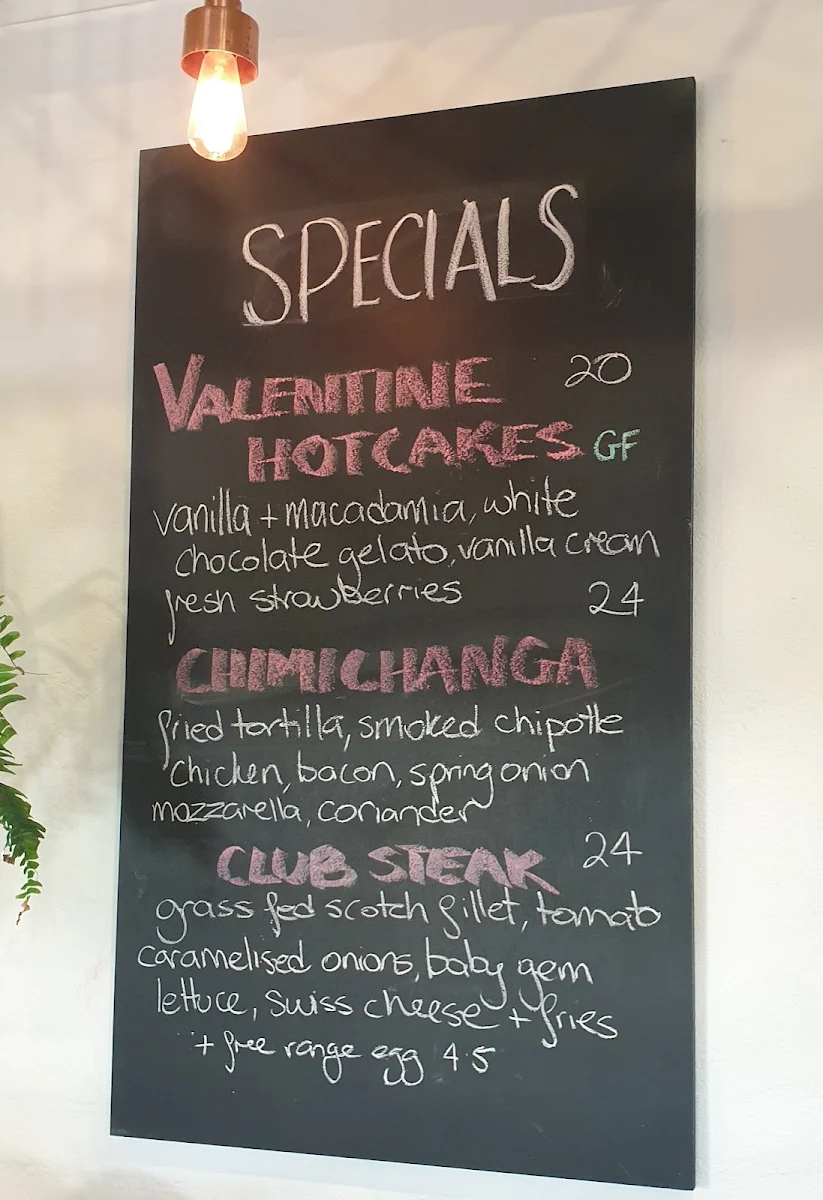 SPECIALS
VALENTINE 20
HOTCAKES GF
vanilla + macadamia, white
chocolate gelato, vanilla cream
fresh strawberries 24
CHIMICHANGA
fried tortilla, smoked chipotle
chicken, bacon, spring onion
mozzarella, coriander
CLUB STEAK 24
grass fed scotch fillet, tomato
caramelised onions, baby gem
lettuce, swiss cheese + fries
+ free range egg 4.5